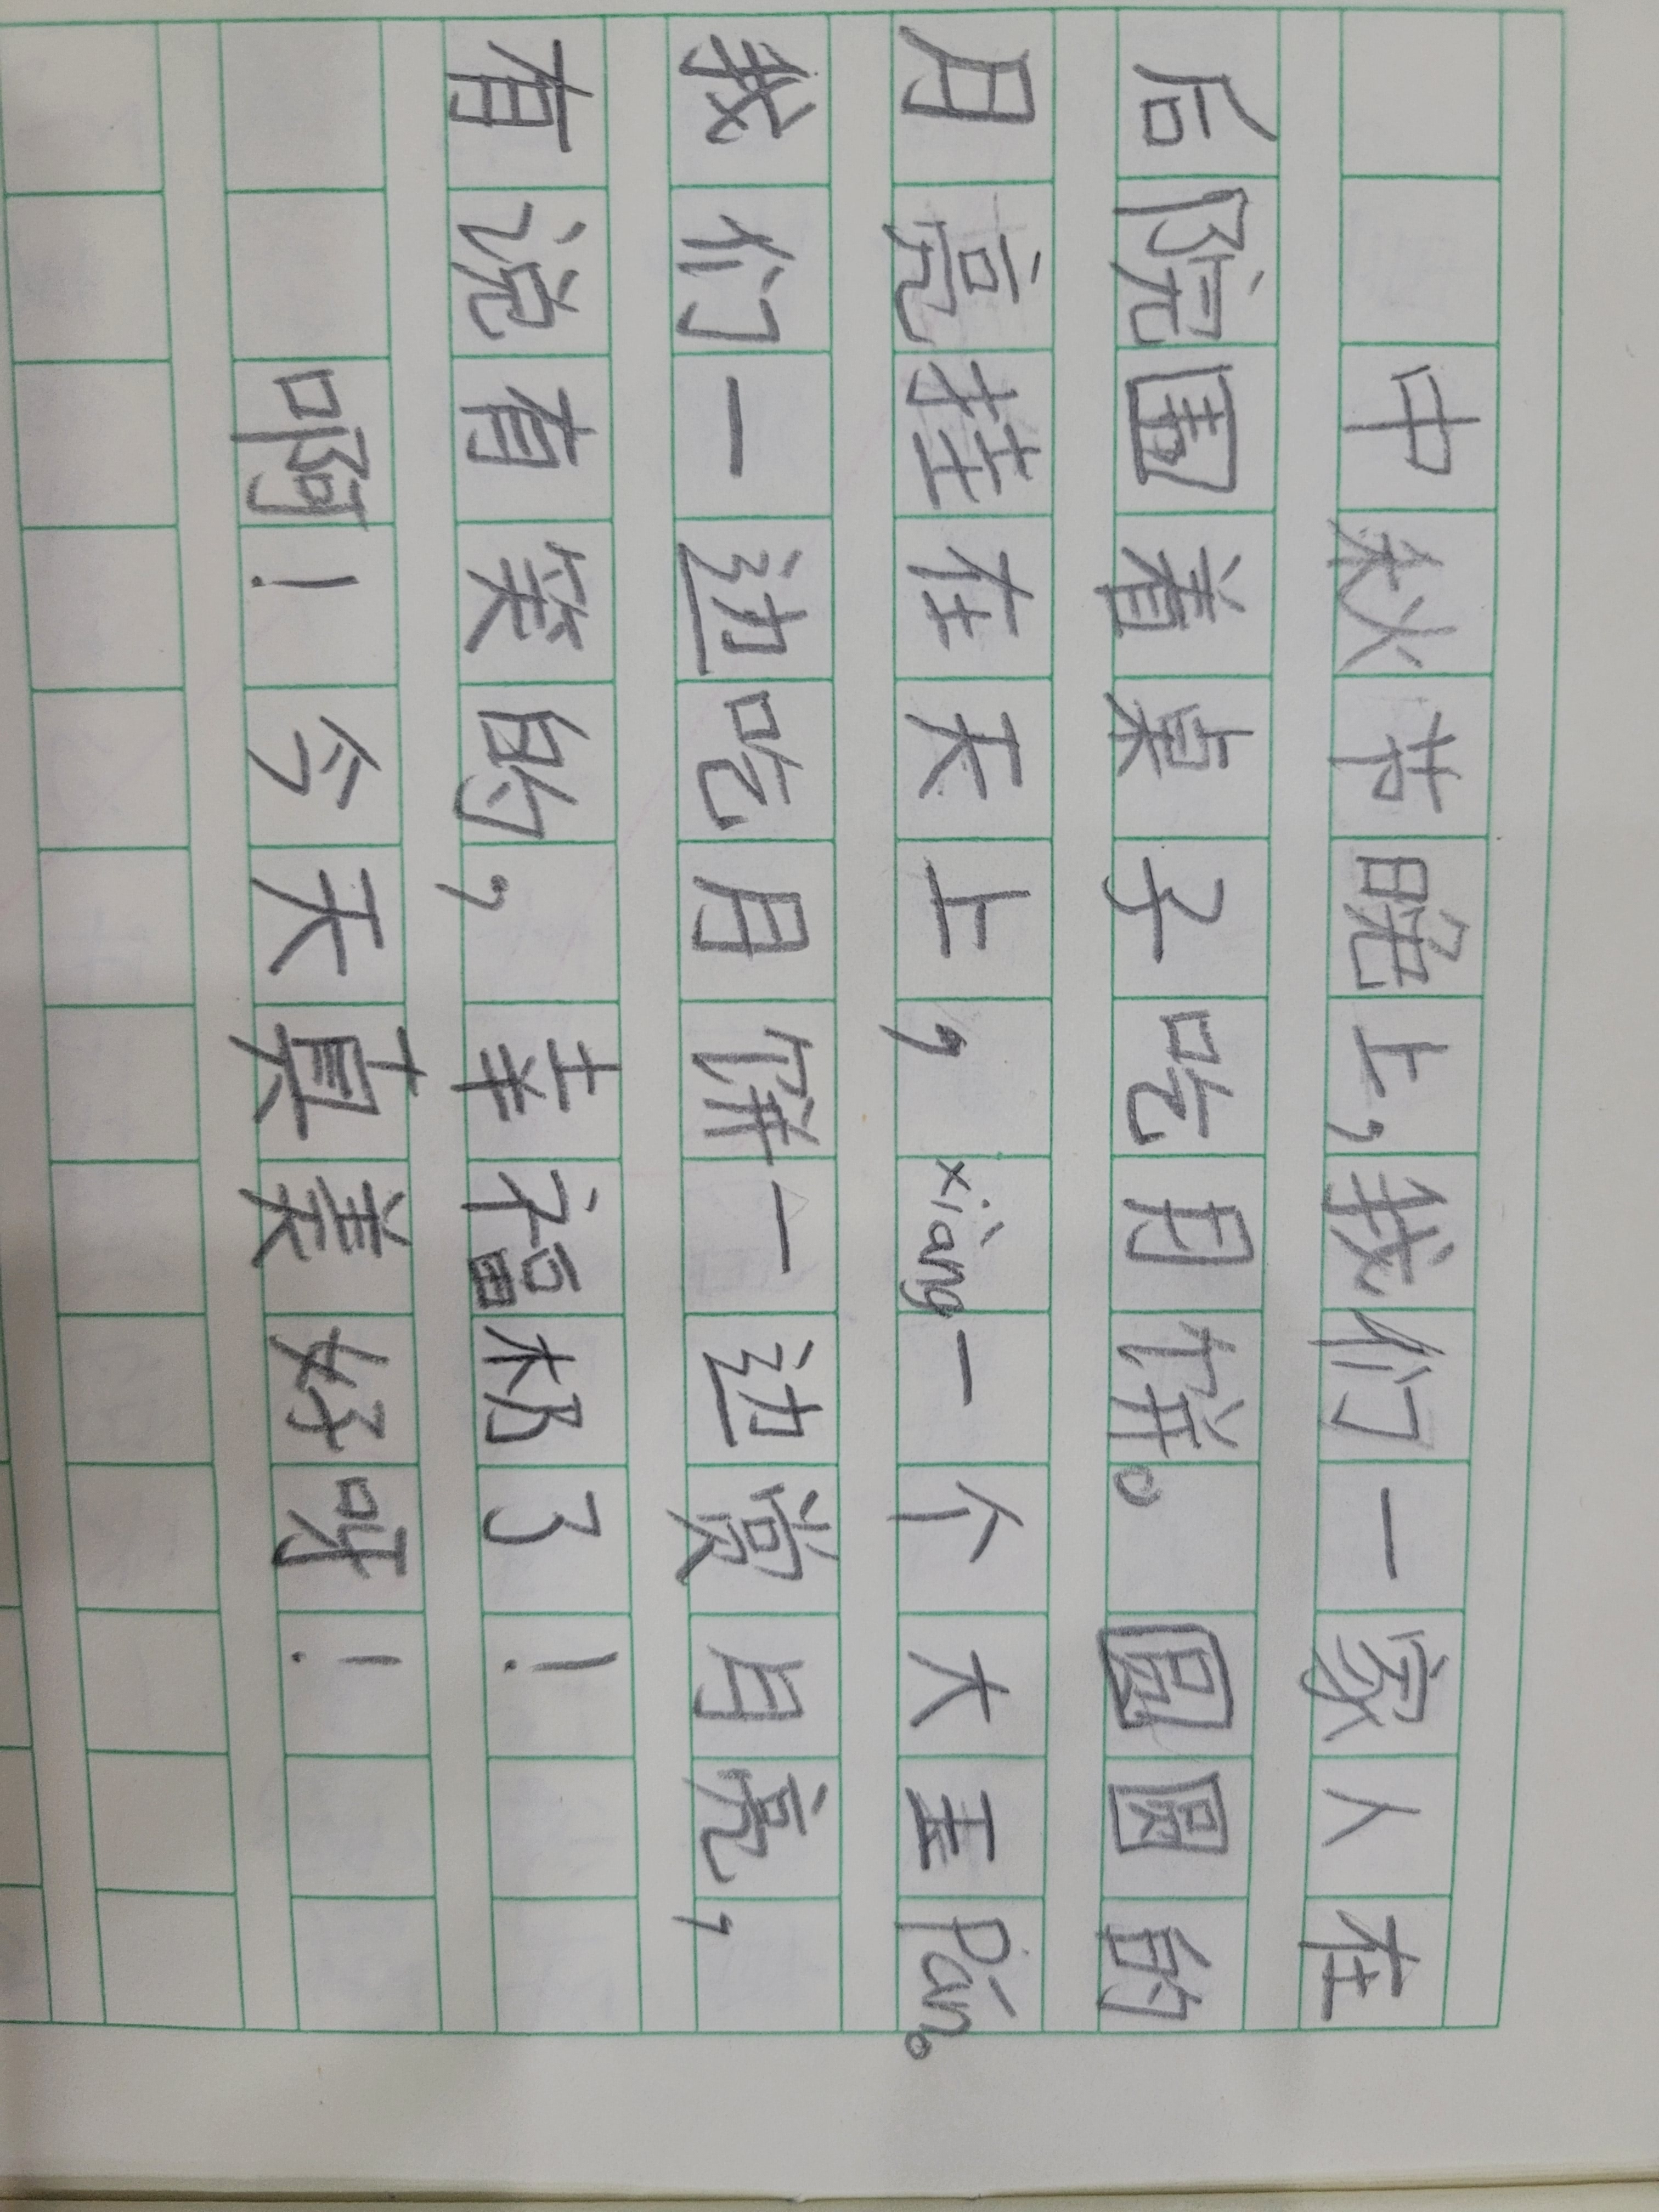 中秋节晚上,我们一家人在
后院围着桌子吃月饼。圆圆的
月亮挂在天上,xiàng一个大玉Pán。
我们一边吃月饼一边赏月亮,
有说有笑的,幸福极了!
啊!今天真美好呀!